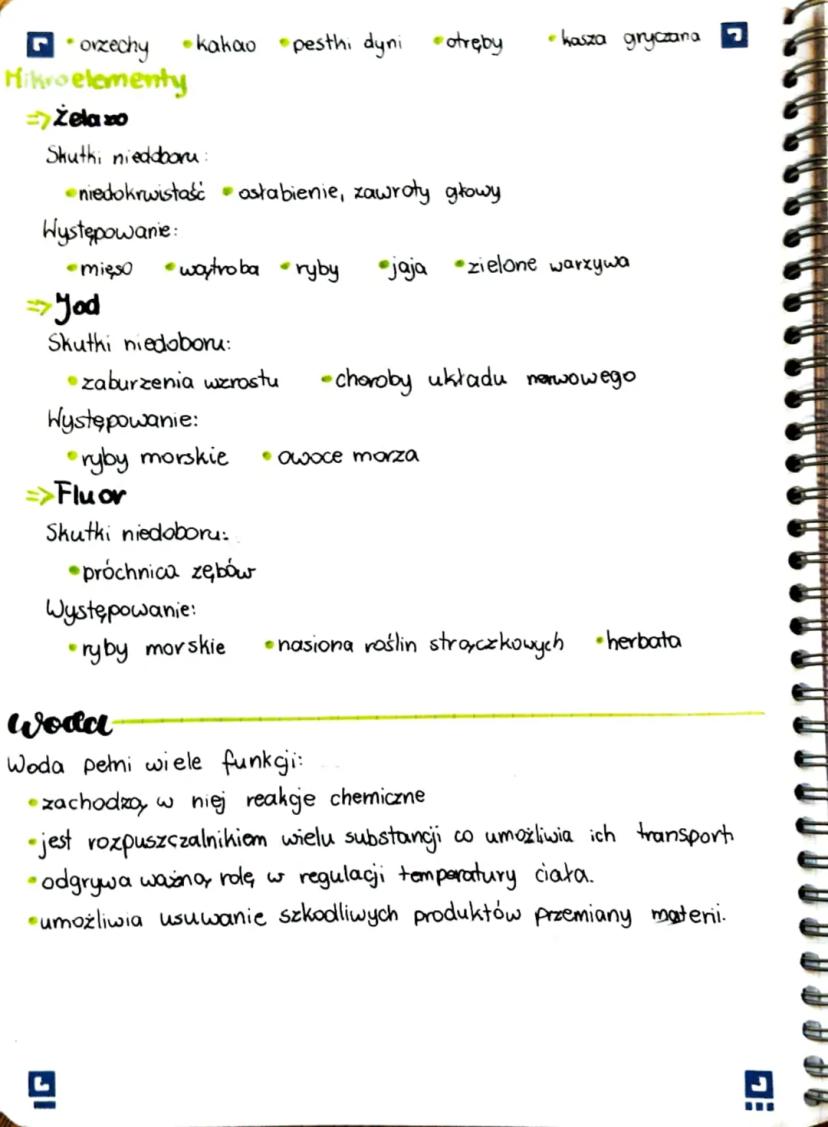 • orzechy • kakao • pestki dyni • otręby • kasza gryczana
Mikroelementy
=> Żelazo
Skutki niedoboru:
• niedokrwistość • osłabienie, zawroty głowy
Występowanie:
• mięso • wątroba • ryby • jaja • zielone warzywa
=> Jod
Skutki niedoboru:
• zaburzenia wzrostu • choroby układu nerwowego
Występowanie:
• ryby morskie • owoce morza
=> Fluor
Skutki niedoboru:
• próchnica zębów
Występowanie:
• ryby morskie • nasiona roślin strączkowych • herbata
Woda
Woda pełni wiele funkcji:
• zachodzą w niej reakcje chemiczne
• jest rozpuszczalnikiem wielu substancji co umożliwia ich transport
• odgrywa ważną rolę w regulacji temperatury ciała.
• umożliwia usuwanie szkodliwych produktów przemiany materii.